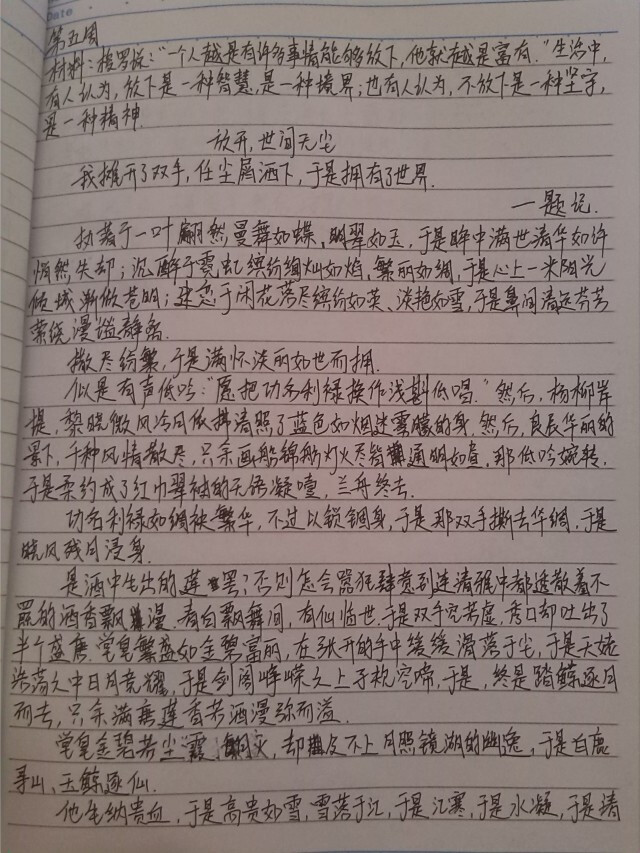 Date
第五周
材料:梭罗说:“一个人越是有许多事情能够放下,他就越是富有.”生活中,
有人认为,放下是一种智慧,是一种境界;也有人认为,不放下是一种坚守,
是一种精神.
放开,世间无尘
我摊开了双手,任尘屑洒下,于是拥有了世界.
—题记.
执著于一叶翩然,曼舞如蝶、明翠如玉,于是眸中满世清华如许
悄然失却;沉醉于霓虹缤纷绚灿如焰,繁丽如绸,于是心上一米阳光
倾城渐做苍明;迷恋于闲花落尽缤纷如英、淡艳如雪,于是鼻间清远芬芳
萦绕漫溢静
撒尽纷繁,于是满怀淡丽如世而拥.
似是有声低吟:“愿把功名利禄换作浅斟低唱.”然后,杨柳岸
堤,黎晓微风冷月依拂清照了蓝色如烟迷雾朦的身.然后,良辰华丽的
景下,千种风情散尽,只余画船锦舫灯火尽皆通明如昼,那低吟婉转,
于是柔约成了红巾翠袖的无语凝噎,兰舟终去.
功名利禄如绸袂繁华,不过以锁锢身,于是那双手撕去华绸,于是
晓风残月浸身.
是酒中生出的莲罢?否则怎会嚣狂肆意到连清骨中都透散着不
羁的酒香飘漫.青白飘舞间,有仙临世,于是双手空若虚,秀口却吐出了
半个盛唐.堂皇繁盛如金碧富丽,在张开的手中缓缓滑落于尘,于是天姥
浩荡之中日月竞耀,于是剑阁峥嵘之上子规空啼,于是,终是踏鲸逐月
而去,只余满唐莲香若酒漫弥而溢.
堂皇金碧若尘霰湖灭,却及不上月照镜湖的幽逸,于是白鹿
寻山、玉鲸逐仙.
他生纳贵血,于是高贵如雪,雪落于江,于是江寒,于是水凝,于是清